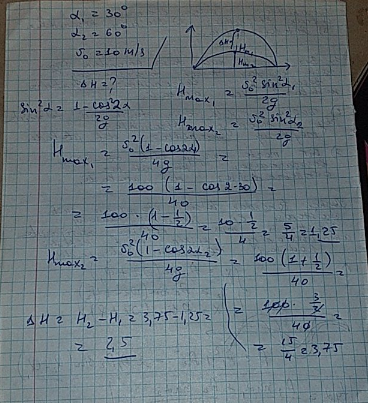 α₁ = 30°
α₂ = 60°
v₀ = 10 m/s
ΔH = ?
ΔH Hm₂
Hm₁
sin²α = (1 - cos2α)/2g
Hmax₁ = v₀² sin²α₁/2g
Hmax₂ = v₀² sin²α₂/2g
Hmax₁ = v₀²(1 - cos2α)/4g =
= 100 (1 - cos 2·30)/40 =
= 100 · (1 - 1/2)/40 = 10 · 1/2/4 = 5/4 = 1,25
Hmax₂ = v₀²(1 - cos2α₂)/4g = 100 (1 + 1/2)/40 =
= 100 · 3/2/40 =
= 15/4 = 3,75
ΔH = H₂ - H₁ = 3,75 - 1,25 =
= 2,5